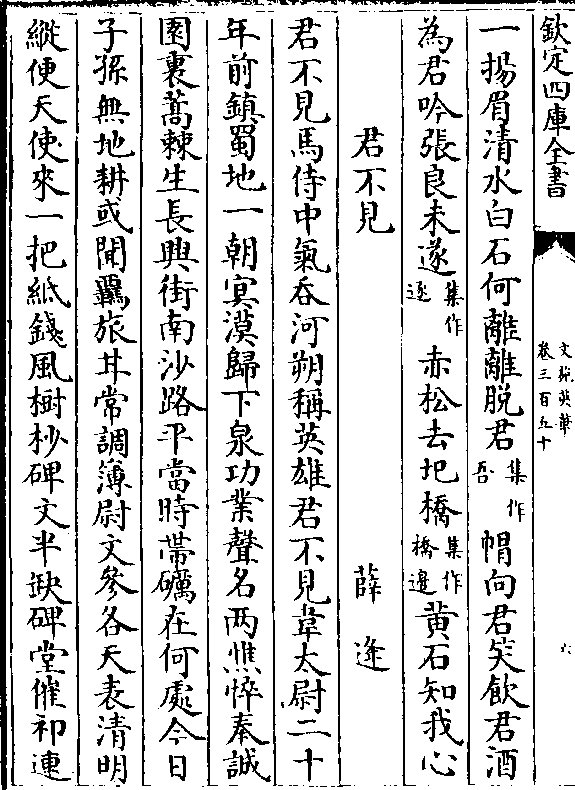 欽定四庫全書
文苑英華
卷三百五十
六
一揚眉清水白石何離離脫君集作吾帽向君笑飲君酒
為君吟張良未遂集作逐赤松去圯橋集作橋邉黄石知我心
君不見 薛逢
君不見馬侍中氣吞河朔稱英雄君不見韋太尉二十
年前鎮蜀地一朝㝠漠歸下泉功業聲名两憔悴奉誠
園裏蒿棘生長興街南沙路平當時帶礪在何處今日
子孫無地耕或聞羈旅甘常調簿尉文參各天表清明
縱便天使來一把紙錢風樹杪碑文半缺碑堂催祁連